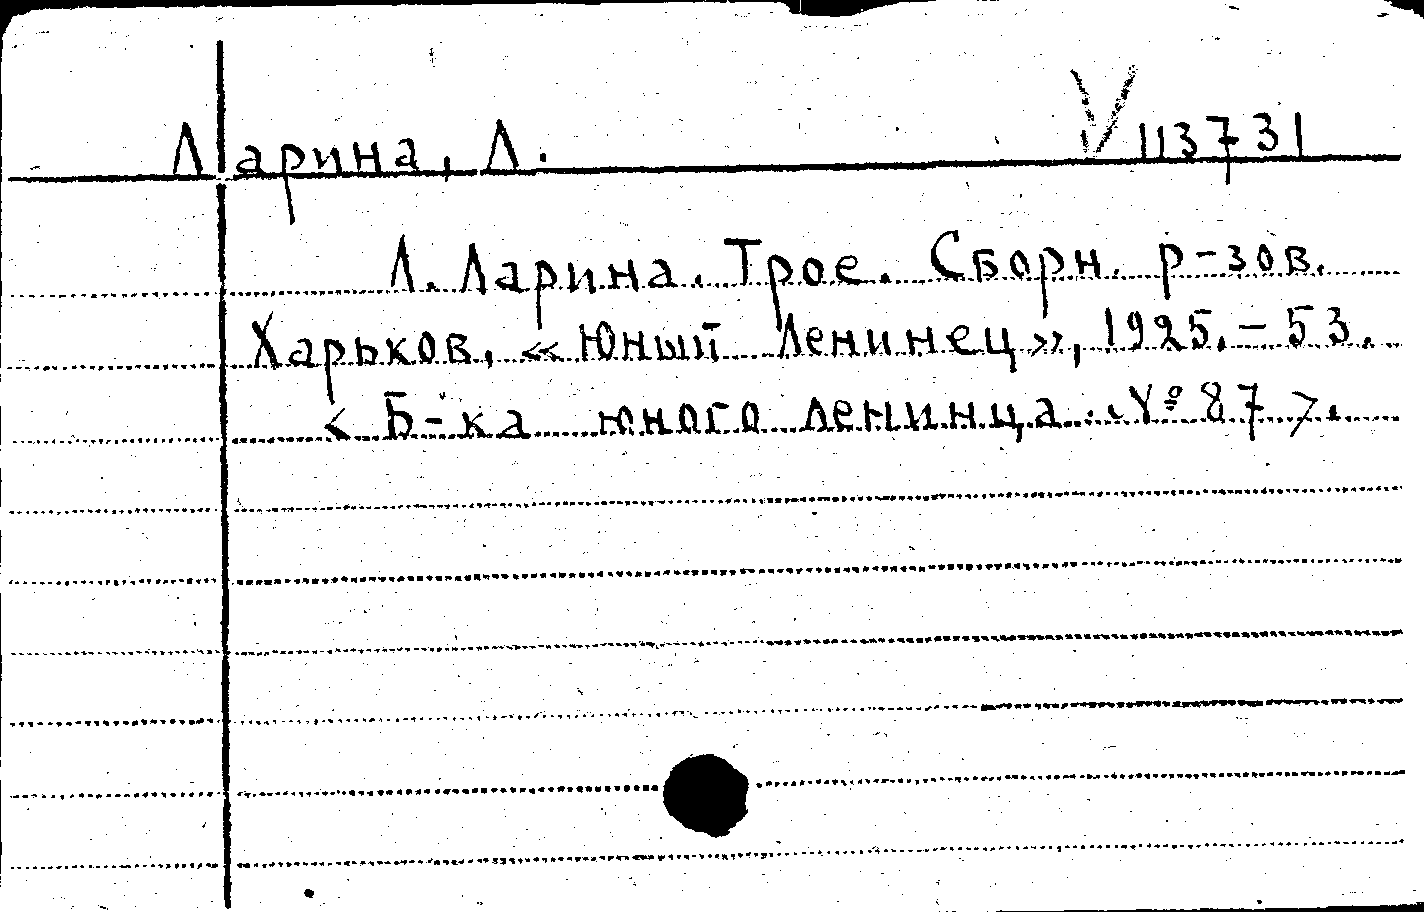 Ларина, Л. V 113731
Л. Ларина. Трое. Сборн. р-зов.
Харьков, «Юный Ленинец», 1925. – 53.
< Б-ка юного ленинца. № 87 >.